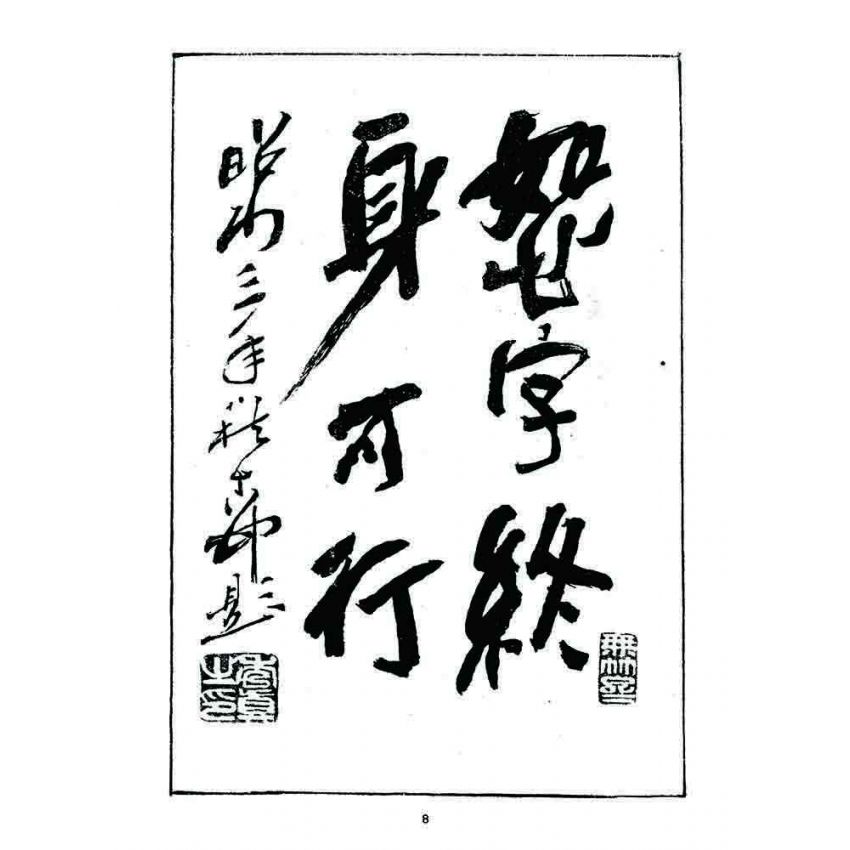 恕字終
身可行
昭和三年秋 題
8